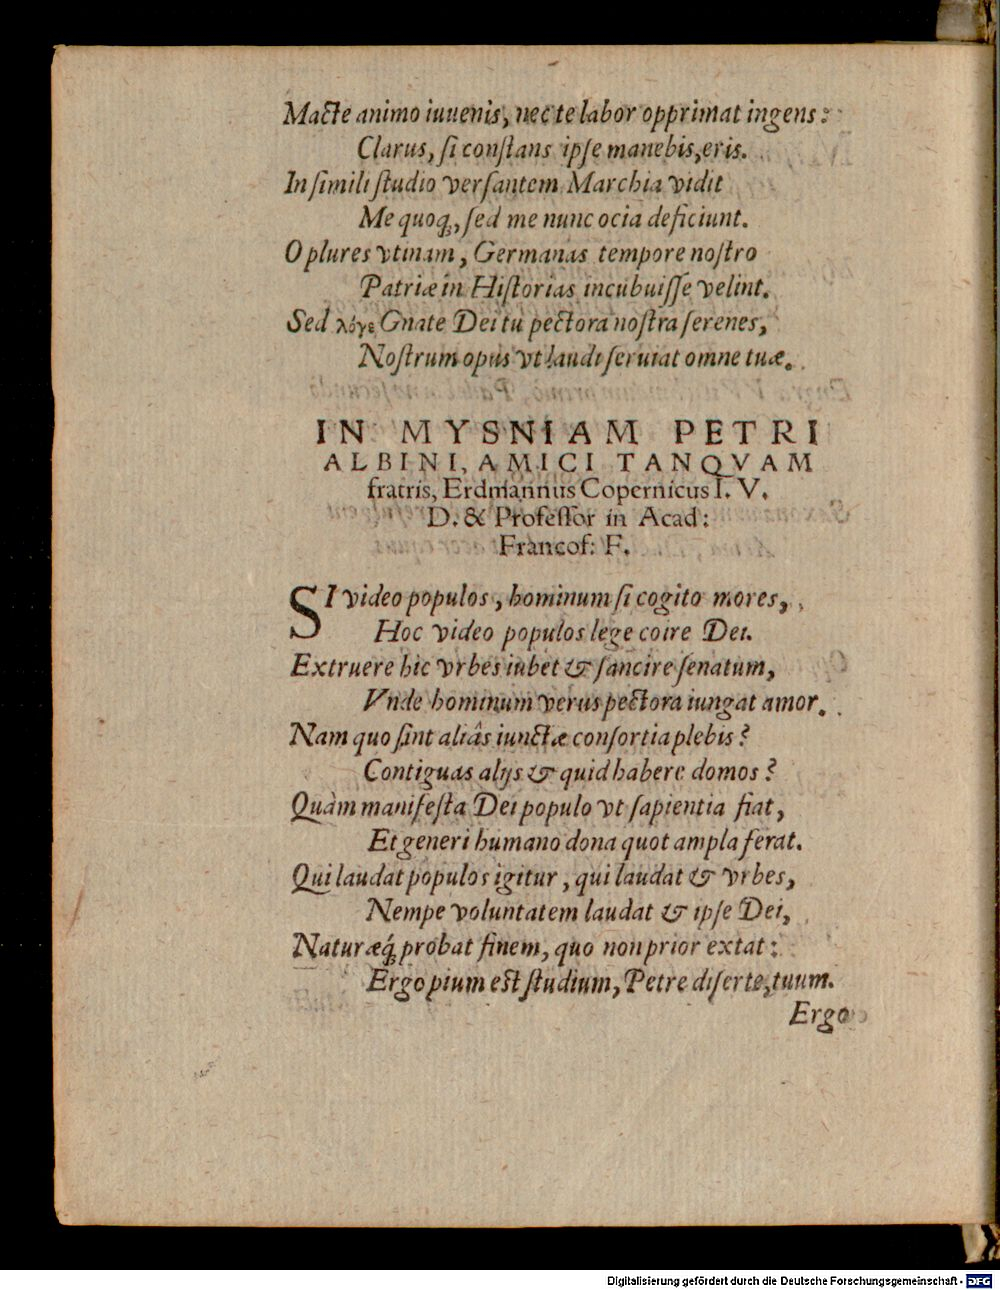 Macte animo iuuenis, nec te labor opprimat ingens:
Clarus, ſi conſtans ipſe manebis, eris.
In ſimili ſtudio verſantem Marchia vidit
Me quoq́;, ſed me nunc ocia deficiunt.
O plures vtinam, Germanas tempore noſtro
Patriæ in Hiſtorias incubuiſſe velint.
Sed λόγε Gnate Dei tu pectora noſtra ſerenes,
Noſtrum opus vt laudi ſeruiat omne tuæ.
IN MYSNIAM PETRI
ALBINI, AMICI TANQVAM
fratris, Erdmannus Copernicus I. V.
D. & Profeſſor in Acad:
Francof: F.
SI video populos, hominum ſi cogito mores,
Hoc video populos lege coire Dei.
Extruere hic vrbes iubet & ſancire ſenatum,
Vnde hominum verus pectora iungat amor.
Nam quo ſint aliâs iunctæ conſortia plebis?
Contiguas alijs & quid habere domos?
Quàm manifeſta Dei populo vt ſapientia fiat,
Et generi humano dona quot ampla ferat.
Qui laudat populos igitur, qui laudat & vrbes,
Nempe voluntatem laudat & ipſe Dei,
Naturæq́; probat finem, quo non prior extat:
Ergo pium eſt ſtudium, Petre diſerte, tuum.
Ergo
Digitalisierung gefördert durch die Deutsche Forschungsgemeinschaft - DFG